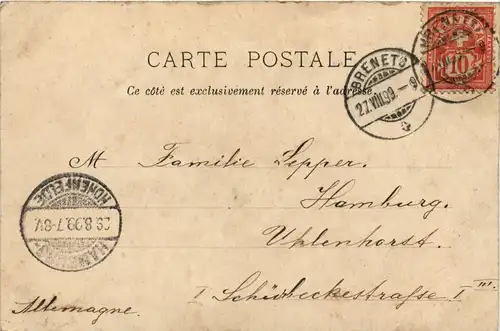 CARTE POSTALE
Ce côté est exclusivement réservé à l'adresse.
BRENETS
27.VIII.99.—9
10
M Familie Lepper.
Hamburg.
Uhlenhorst.
I Schürbeckestraße I III.
Allemagne.
HAMBURG
29.8.99.7-8V.
HOHENFELDE